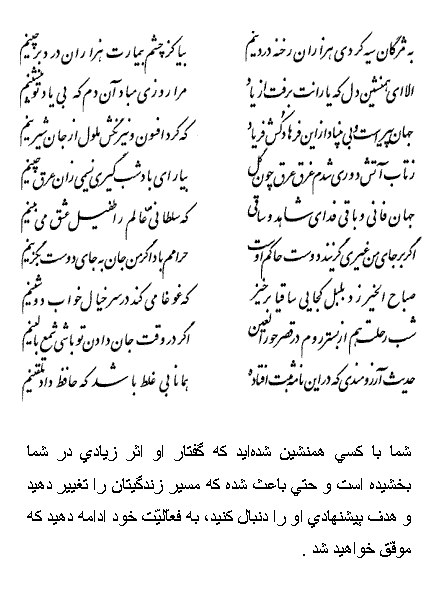 به مژگان سیه کردی هزاران رخنه در دینم بیا کز چشم بیمارت هزاران درد برچینم
الا ای همنشین دل که یارانت برفت از یاد مرا روزی مباد آن دم که بی یاد تو بنشینم
جهان پیر است و بی بنیاد از این فرهادکش فریاد که کرد افسون و نیرنگش ملول از جان شیرینم
ز تاب آتش دوری شدم غرق عرق چون گل بیار ای باد شبگیری نسیمی زان عرق چینم
جهان فانی و باقی فدای شاهد و ساقی که سلطانی عالم را طفیل عشق می بینم
اگر بر جای من غیری گزیند دوست حاکم اوست حرامم باد اگر من جان به جای دوست بگزینم
صباح الخیر زد بلبل کجایی ساقیا برخیز که غوغا می کند در سر خیال خواب دوشینم
شب رحلت هم از بستر روم در قصر حورالعین اگر در وقت جان دادن تو باشی شمع بالینم
حدیث آرزومندی که در این نامه ثبت افتاد همانا بی غلط باشد که حافظ داد تلقینم
شما با کسي همنشین شده‌اید که گفتار او اثر زیادي در شما
بخشیده است و حتي باعث شده که مسیر زندگیتان را تغییر دهید
و هدف پیشنهادي او را دنبال کنید، به فعالیّت خود ادامه دهید که
موفّق خواهید شد .